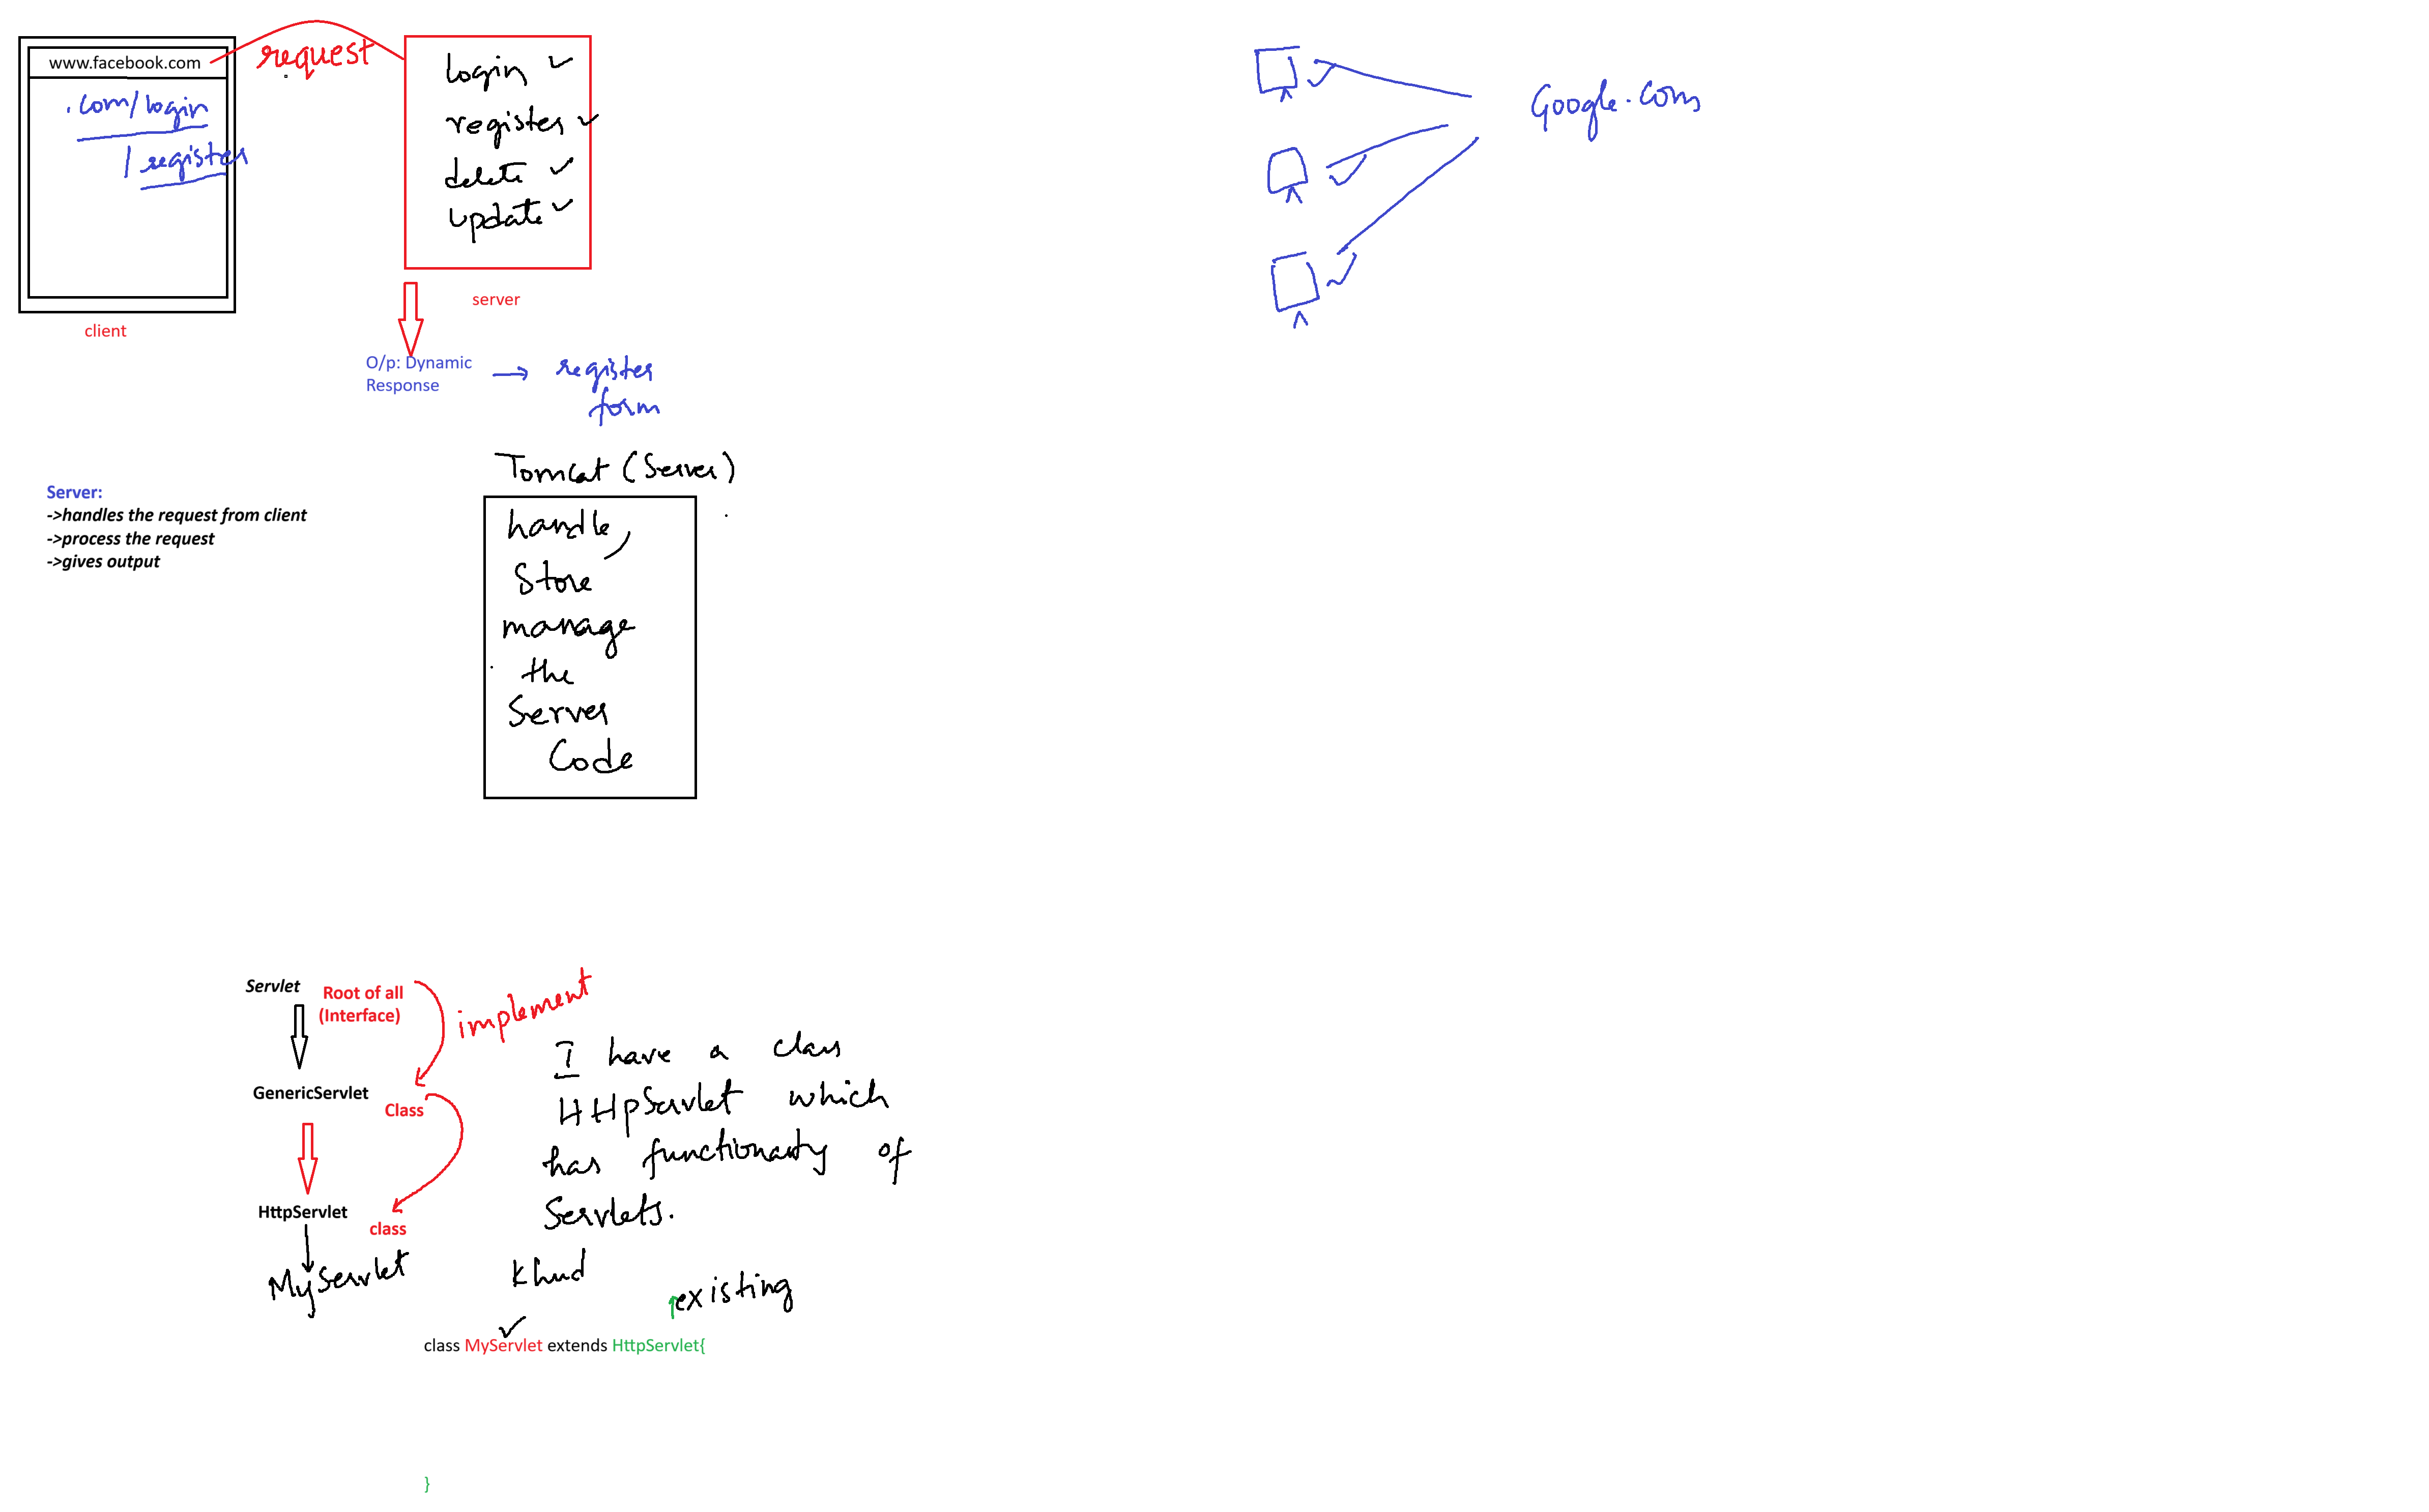 www.facebook.com
.com/login
/ register
client
request
login
register
delete
update
server
O/p: Dynamic
Response
register
form
Google.com
Server:
->handles the request from client
->process the request
->gives output
Tomcat (Server)
handle,
Store
manage
the
Server
Code
Servlet
Root of all
(Interface)
implement
GenericServlet
Class
HttpServlet
class
MyServlet
I have a class
HttpServlet which
has functionality of
Servlets.
Khud
existing
class MyServlet extends HttpServlet{
}